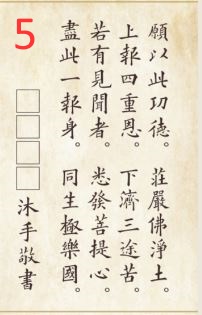 願以此功德。莊嚴佛淨土。
上報四重恩。下濟三途苦。
若有見聞者。悉發菩提心。
盡此一報身。同生極樂國。
沐手敬書
5